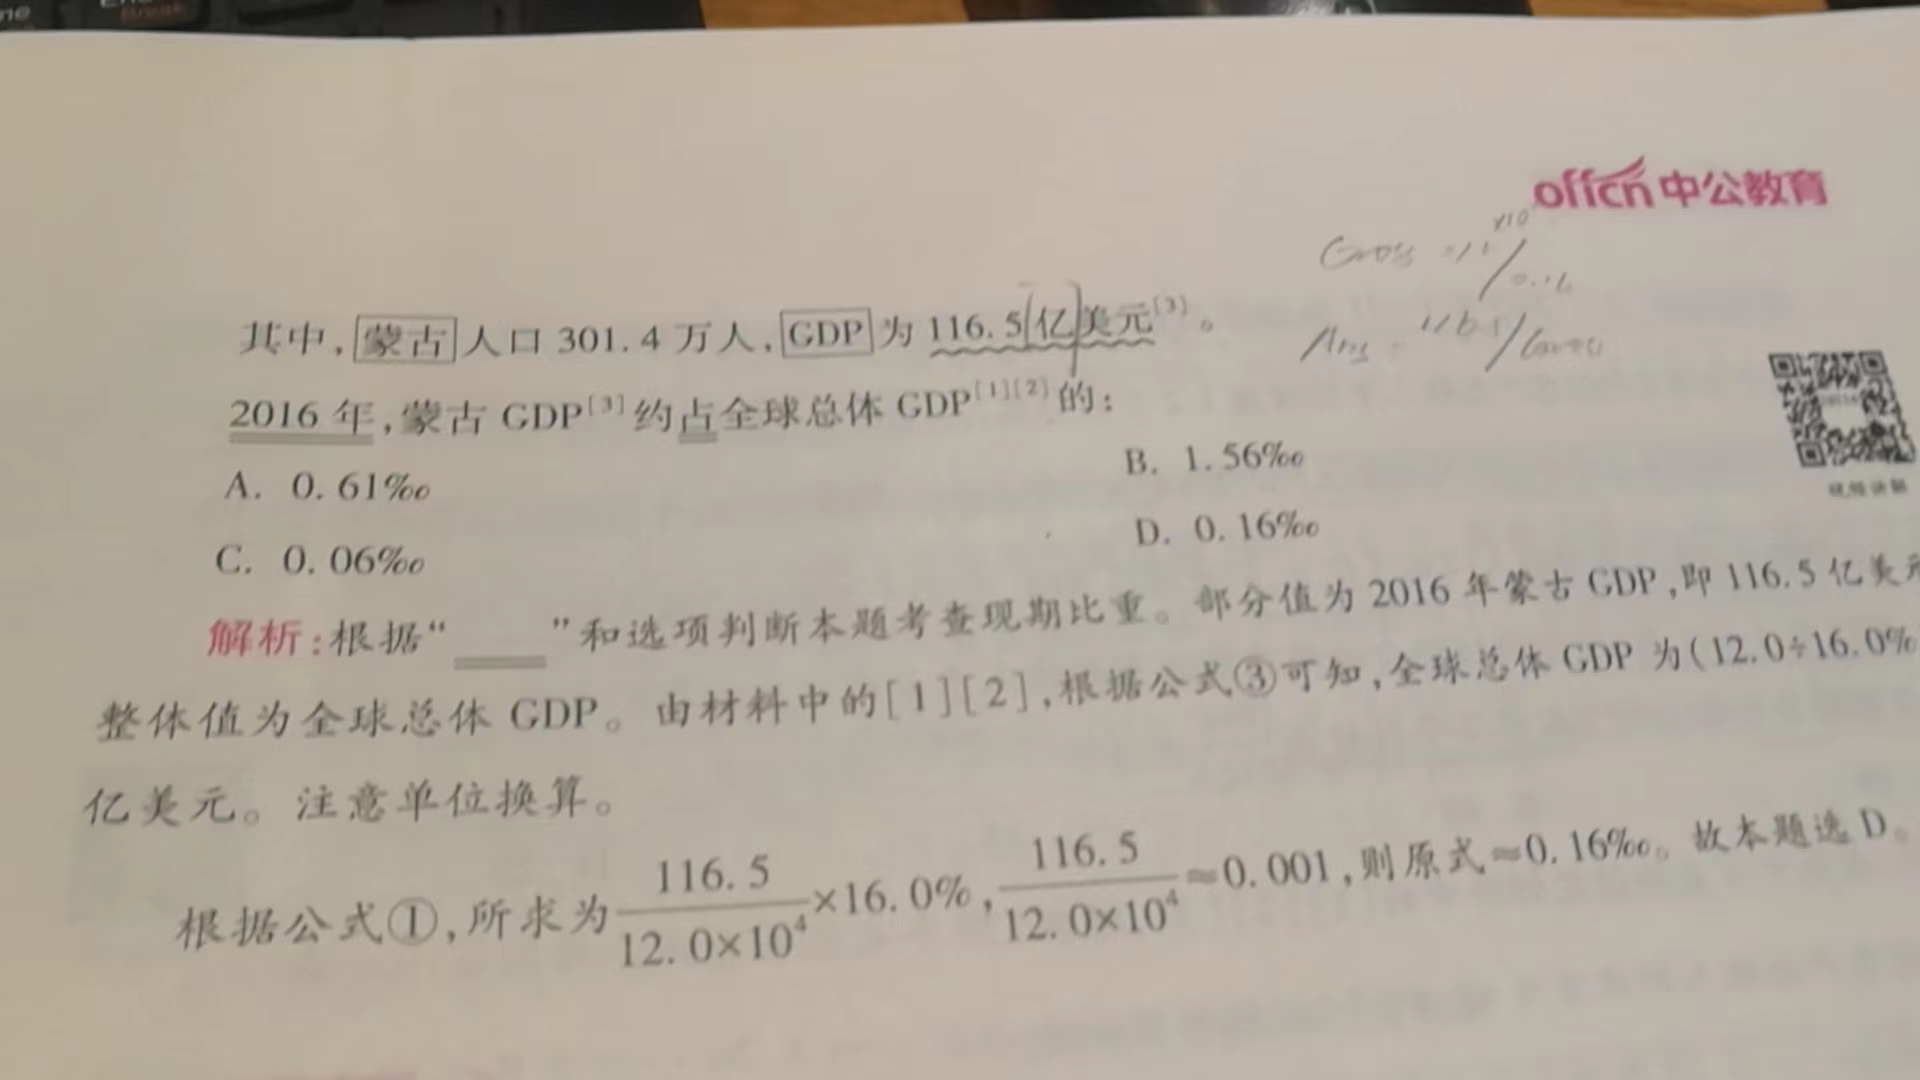 offcn中公教育
其中,蒙古人口301.4万人,GDP为116.5亿美元[3]。
2016年,蒙古GDP[3]约占全球总体GDP[1][2]的:
A. 0.61‰
B. 1.56‰
C. 0.06‰
D. 0.16‰
解析:根据“____”和选项判断本题考查现期比重。部分值为2016年蒙古GDP,即116.5亿美元
整体值为全球总体GDP。由材料中的[1][2],根据公式③可知,全球总体GDP为(12.0÷16.0%
亿美元。注意单位换算。
根据公式①,所求为116.5/12.0×10⁴×16.0%,116.5/12.0×10⁴≈0.001,则原式≈0.16‰。故本题选D。